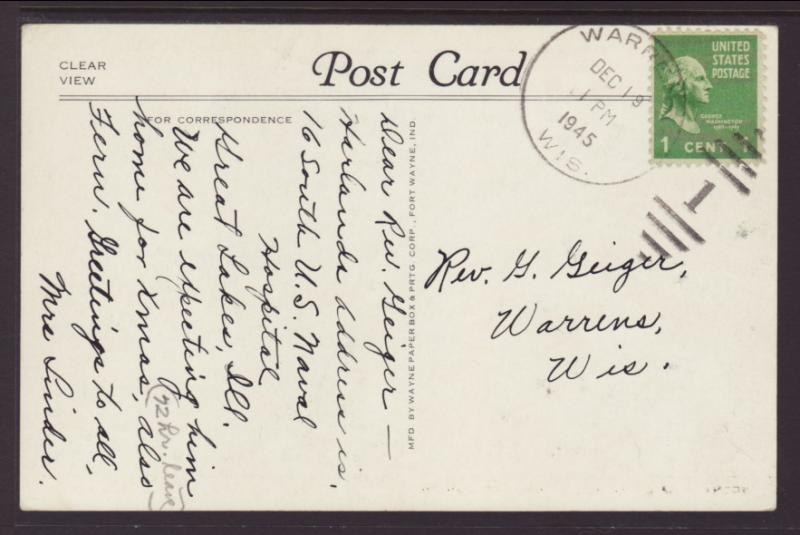 CLEAR
VIEW
Post Card
FOR CORRESPONDENCE
Dear Rev. Geiger —
Harlands address is,
16 South U.S. Naval
Hospital
Great Lakes, Ill.
We are expecting him
home for Xmas, also
(72 hr. leave)
Fern. Greetings to all,
Mrs Linder.
MFD BY WAYNE PAPER BOX & PRTG. CORP., FORT WAYNE, IND.
WARRENS
DEC 19
1 PM
1945
WIS.
UNITED
STATES
POSTAGE
GEORGE
WASHINGTON
1 CENT
1
Rev. G. Geiger,
Warrens,
Wis.